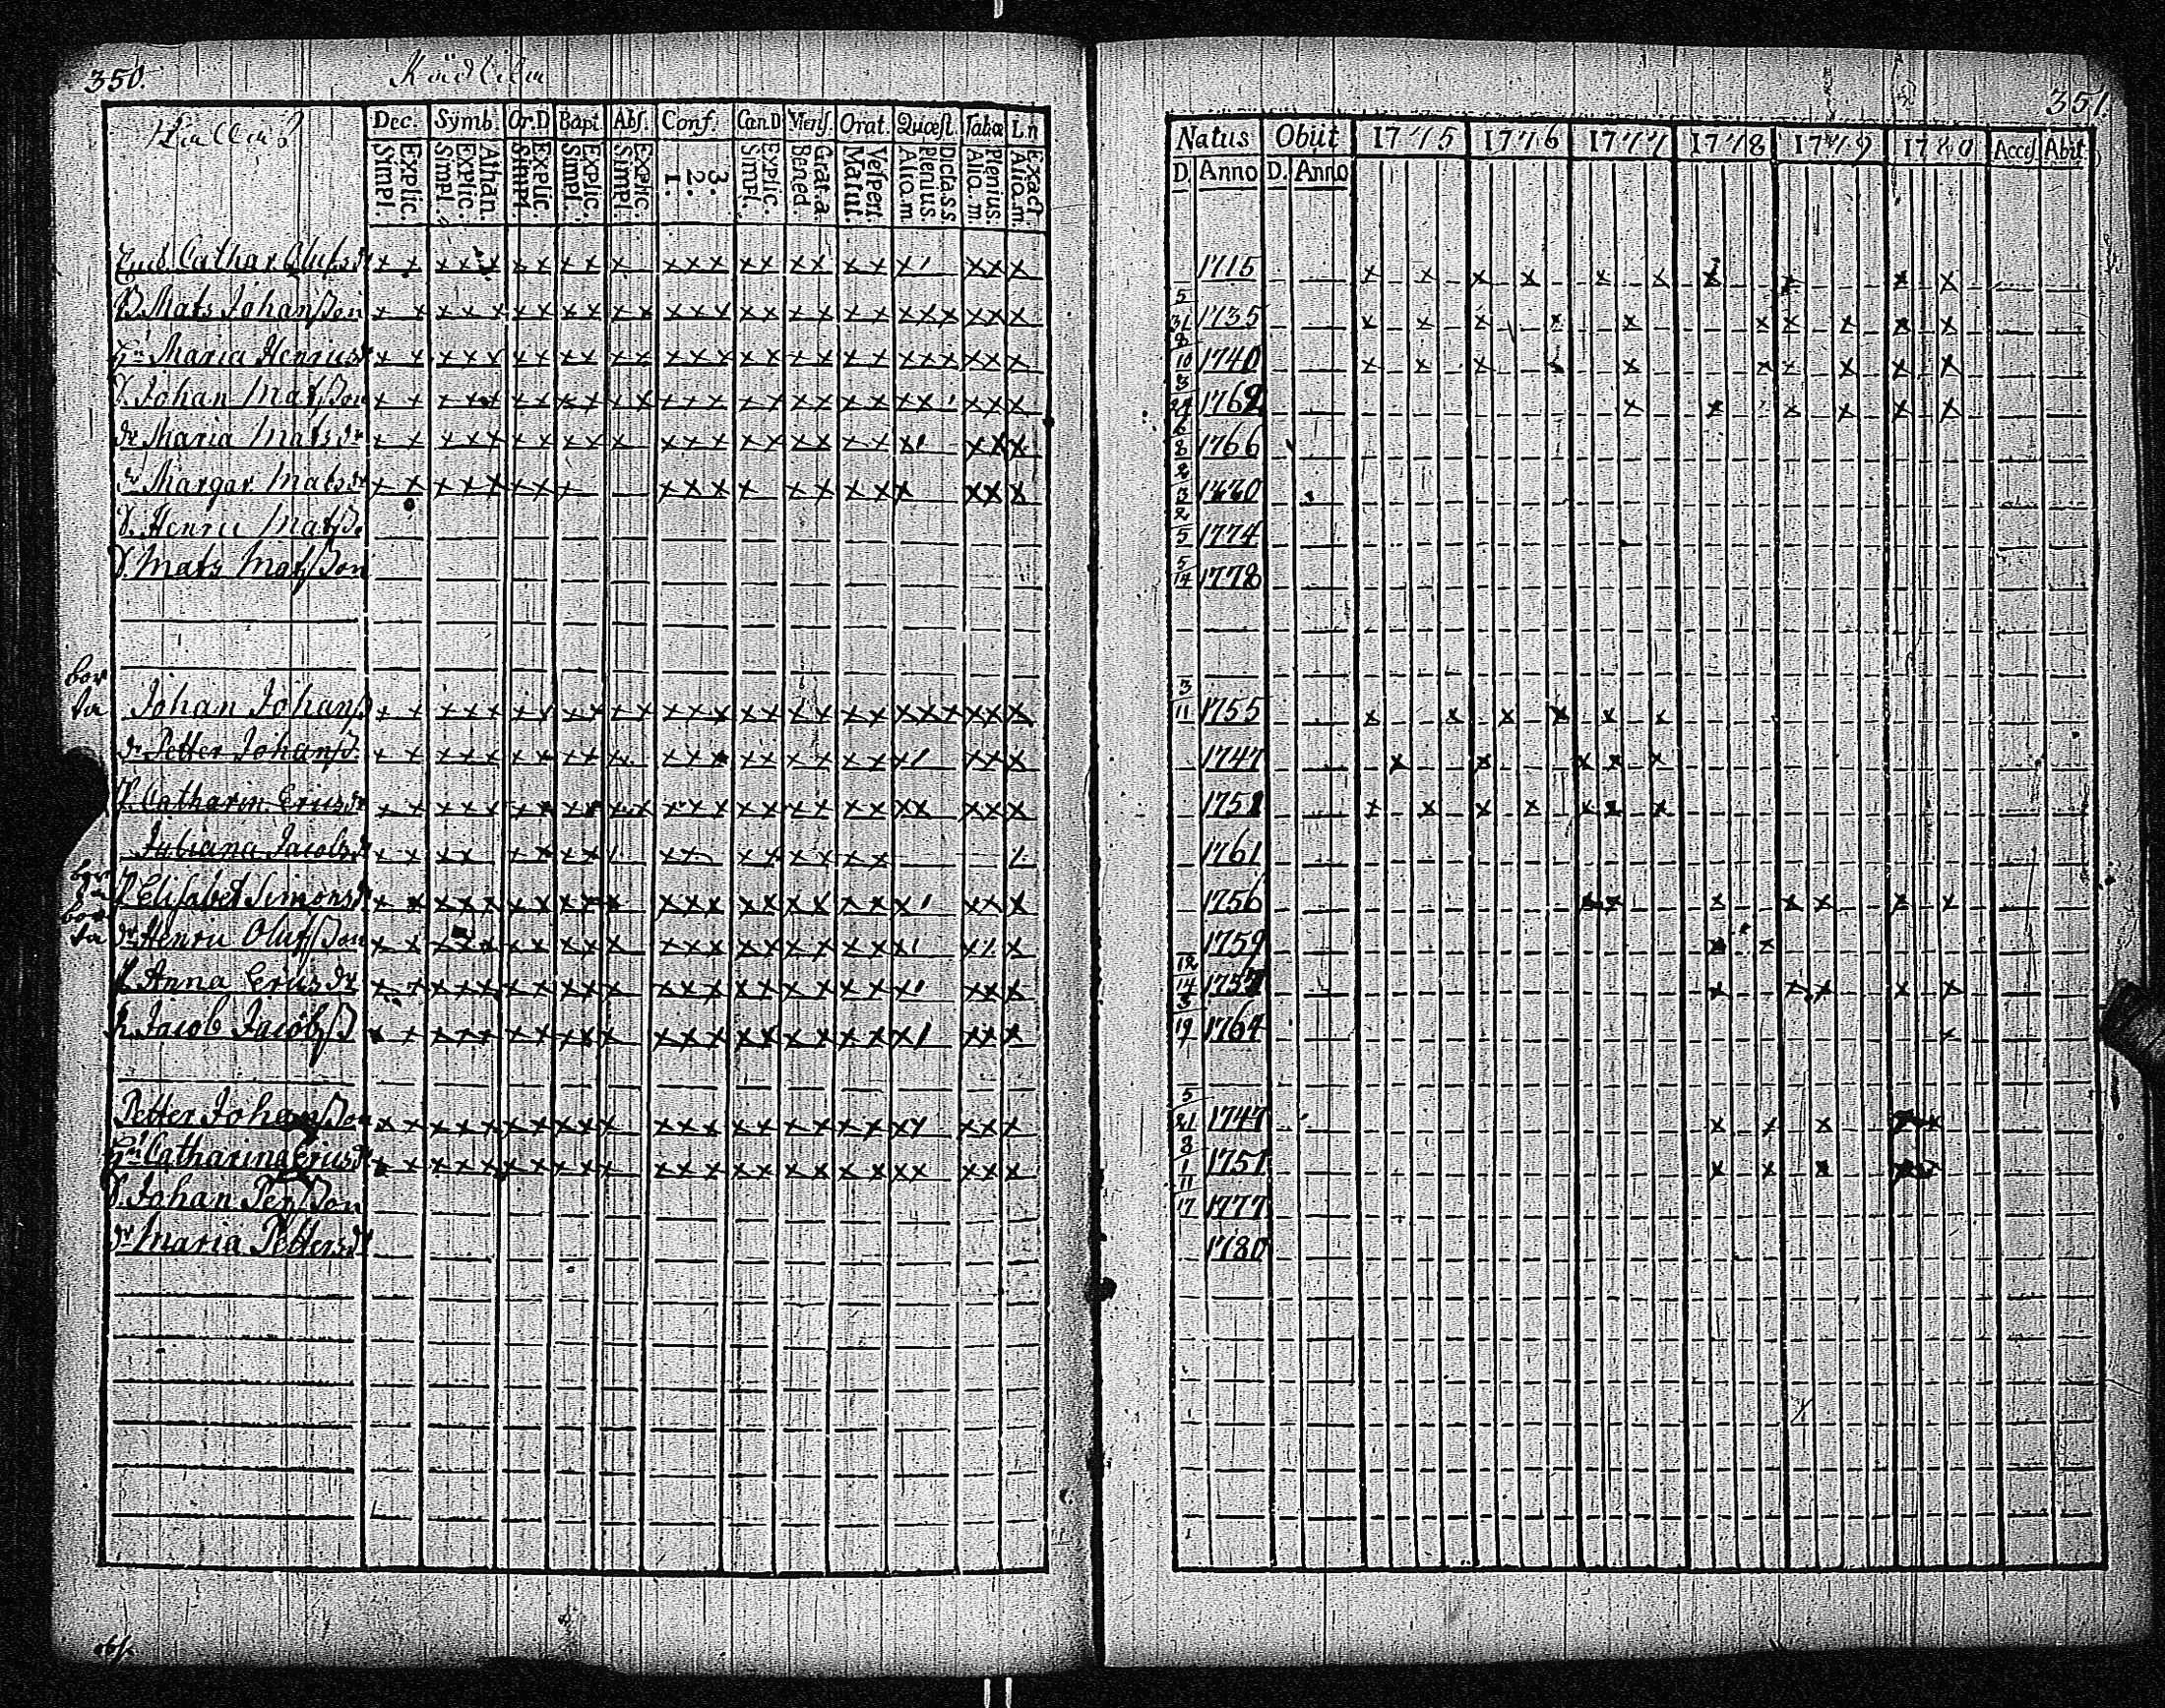 350.
Dec. Symb. Or.D Bapt. Abs. Conf. Can.D Mens. Orat. Quæst. Tabæ L.n
Explic. Simpl. Athan. Explic. Simpl. Explic. Simpl. Explic. Simpl. Explic. Simpl. 3. 2. 1. Explic. Simpl. Grat.a. Bened. Vespert. Matut. Dicta.s.s. Plenius Aliq.m. Plenius. Aliq.m. Exact Aliq.m.
Cathar Olufsdr
Mats Johansson
Maria Henricsdr
Johan Matsson
dr Maria Matsdr
dr Margar. Matsdr
Henric Matss.
Mats Matsson
bor
ta
Johan Johanss
dr Petter Johanss.
Catharin Ericsdr
Juliana Jacobsdr
bor
ta
Elisabet Simonsdr
bor
ta
Henric Olufsson
Anna Ericsdr
Jacob Jacobss
Petter Johansson
Catharina Ericsdr
Johan Persson
dr Maria Pettersdr
351.
Natus Obiit 1775 1776 1777 1778 1779 1780 Acces Abiit
D. Anno D. Anno
1715
5/31 1735
8/10 1740
3/24 1762
6/8 1766
2/3 1770
2/5 1774
5/14 1778
3/11 1755
1747
1751
1761
1756
1759
12/14 1757
3/19 1764
5/21 1747
8/1 1751
11/17 1777
1780